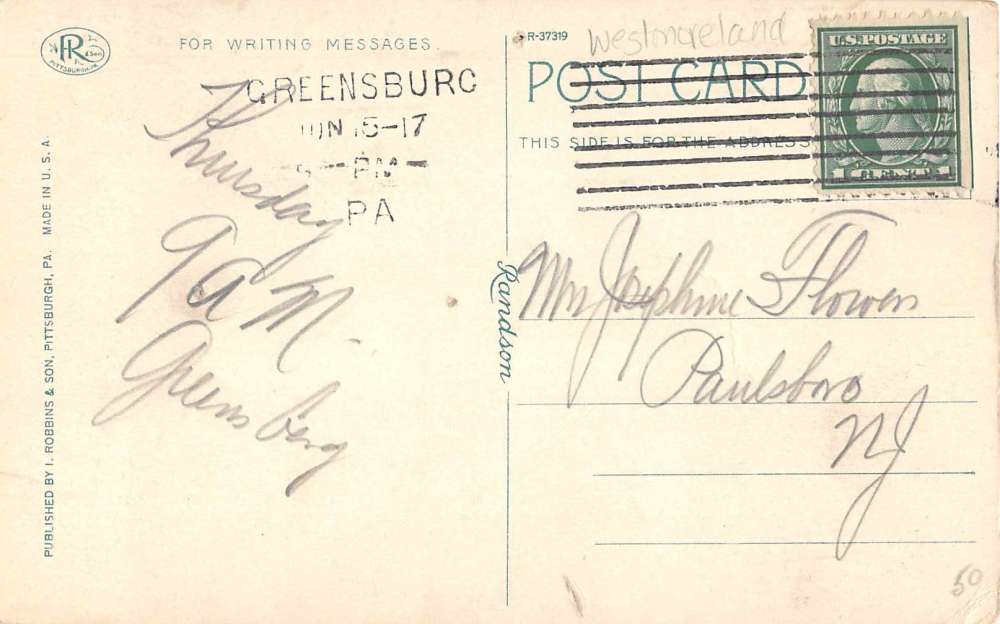 R & Son
PITTSBURGH, PA.
FOR WRITING MESSAGES.
GREENSBURG
JUN 15-17
PM
PA
Thursday
9 a M.
Greensberg
PUBLISHED BY I. ROBBINS & SON, PITTSBURGH, PA. MADE IN U. S. A.
Randson
R-37319
Westmoreland
POST CARD
THIS SIDE IS FOR THE ADDRESS
U.S. POSTAGE
1 1
Mrs Josephine Flowers
Paulsboro
NJ
50